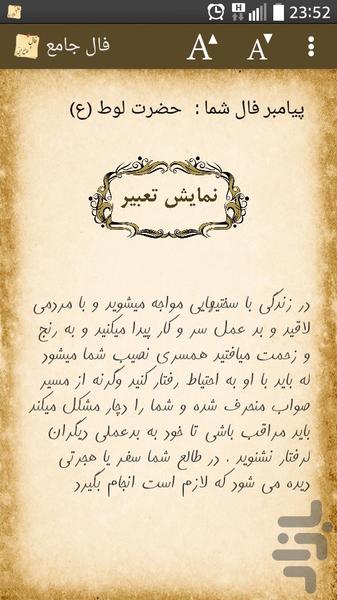 23:52
فال جامع
A
A
پیامبر فال شما : حضرت لوط (ع)
نمایش تعبیر
در زندگی با سختیهایی مواجه میشوید و با مردمی
لاقید و بد عمل سر و کار پیدا میکنید و به رنج
و زحمت میافتید همسری نصیب شما میشود
که باید با او به احتیاط رفتار کنید وگرنه از مسیر
صواب منحرف شده و شما را دچار مشکل میکند
باید مراقب باشی تا خود به بدعملی دیگران
گرفتار نشنوید . در طالع شما سفر یا هجرتی
دیده می شود که لازم است انجام بگیرد
بازار